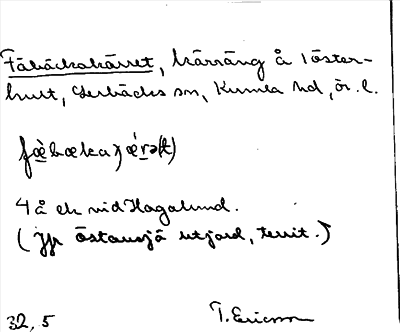 Fäbäckakärret, kärräng å 1 öster-
hult, Lerbäcks sn, Kumla hd, ör. l.
fæ̀bækaçǽrə(t)
4 å ek vid Hagalund.
(Jfr Östansjö utjord, territ.)
32, 5 T. Ericsson